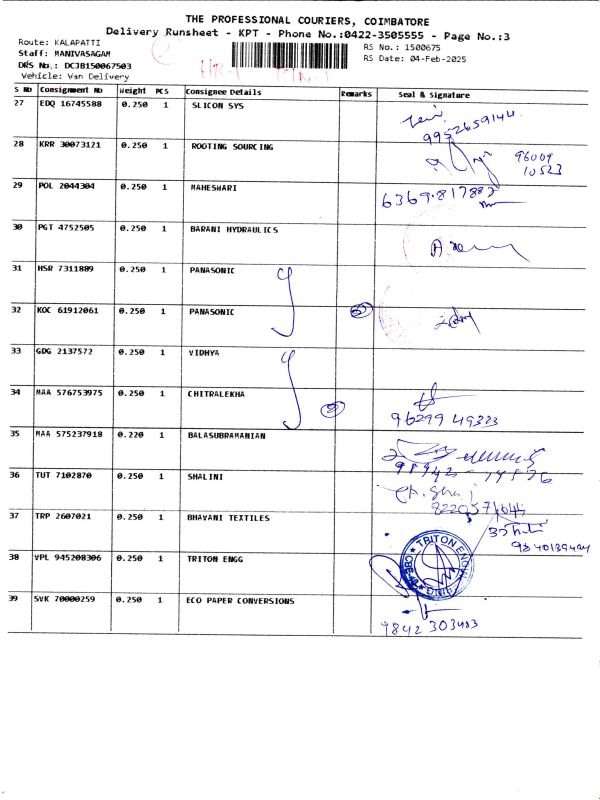 THE PROFESSIONAL COURIERS, COIMBATORE
Delivery Runsheet - KPT - Phone No.:0422-3505555 - Page No.:3
Route: KALAPATTI
RS No.: 1500675
Staff: MANIVASAGAM
RS Date: 04-Feb-2025
DRS No.: DCJB150067503
Vehicle: Van Delivery
S NO Consignment NO Weight PCS Consignee Details Remarks Seal & Signature
27 EDQ 16745588 0.250 1 SLICON SYS
9952659144
28 KRR 30073121 0.250 1 ROOTING SOURCING
96009
10523
29 POL 2044304 0.250 1 MAHESWARI
6369817882
30 PGT 4752505 0.250 1 BARANI HYDRAULICS
31 HSR 7311889 0.250 1 PANASONIC
32 KOC 61912061 0.250 1 PANASONIC
33 GDG 2137572 0.250 1 VIDHYA
34 MAA 576753975 0.250 1 CHITRALEKHA
2
96299 49323
35 MAA 575237918 0.220 1 BALASUBRAMANIAN
36 TUT 7102870 0.250 1 SHALINI
37 TRP 2607021 0.250 1 BHAVANI TEXTILES
38 VPL 945208306 0.250 1 TRITON ENGG
TRITON ENGG
39 SVK 70000259 0.250 1 ECO PAPER CONVERSIONS
9842 303403